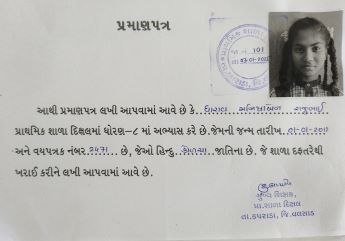 પ્રમાણપત્ર
જા. નં. 101
તા.
આથી પ્રમાણપત્ર લખી આપવામાં આવે છે કે
પ્રાથમિક શાળા દિક્ષલમાં ધોરણ-૮ માં અભ્યાસ કરે છે.જેમની જન્મ તારીખ 01-01-2011
અને વયપત્રક નંબર 2471 છે, જેઓ હિન્દુ જાતિના છે. જે શાળા દફતરેથી
ખરાઈ કરીને લખી આપવામાં આવે છે.
મુખ્ય શિક્ષક,
પ્રા.શાળા દિક્ષલ
તા.કપરાડા, જિ.વલસાડ